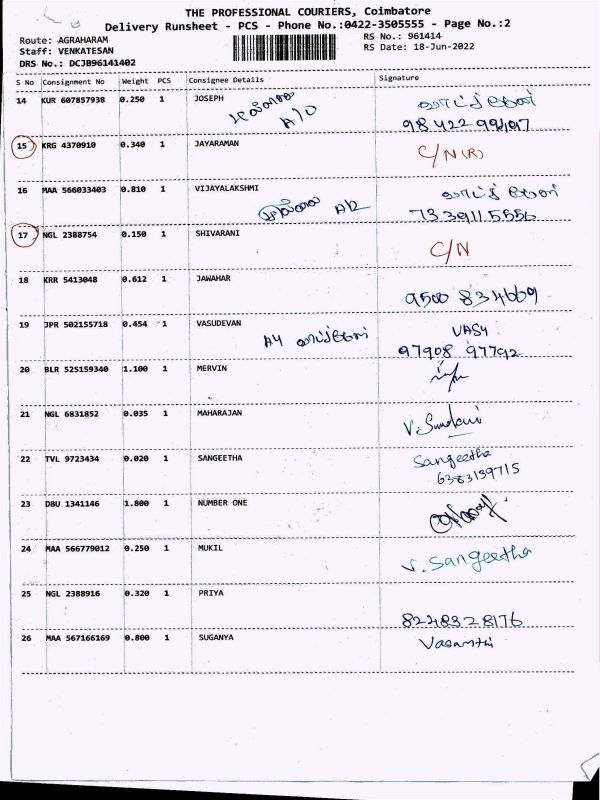 THE PROFESSIONAL COURIERS, Coimbatore
Delivery Runsheet - PCS - Phone No.:0422-3505555 - Page No.:2
Route: AGRAHARAM
RS No.: 961414
Staff: VENKATESAN
RS Date: 18-Jun-2022
DRS No.: DCJB96141402
S No Consignment No Weight PCS Consignee Details Signature
14 KUR 607857938 0.250 1 JOSEPH
15 KRG 4370910 0.340 1 JAYARAMAN C/N (R)
16 MAA 566033403 0.810 1 VIJAYALAKSHMI
7339115556
17 NGL 2388754 0.150 1 SHIVARANI C/N
18 KRR 5413048 0.612 1 JAWAHAR
9500 834669
19 JPR 502155718 0.454 1 VASUDEVAN VASU
A4
97908 97792
20 BLR 525159340 1.100 1 MERVIN
21 NGL 6831852 0.035 1 MAHARAJAN
22 TVL 9723434 0.020 1 SANGEETHA Sangeetha
6383139715
23 DBU 1341146 1.800 1 NUMBER ONE
24 MAA 566779012 0.250 1 MUKIL V. Sangeetha
25 NGL 2388916 0.320 1 PRIYA
8248328176
26 MAA 567166169 0.800 1 SUGANYA